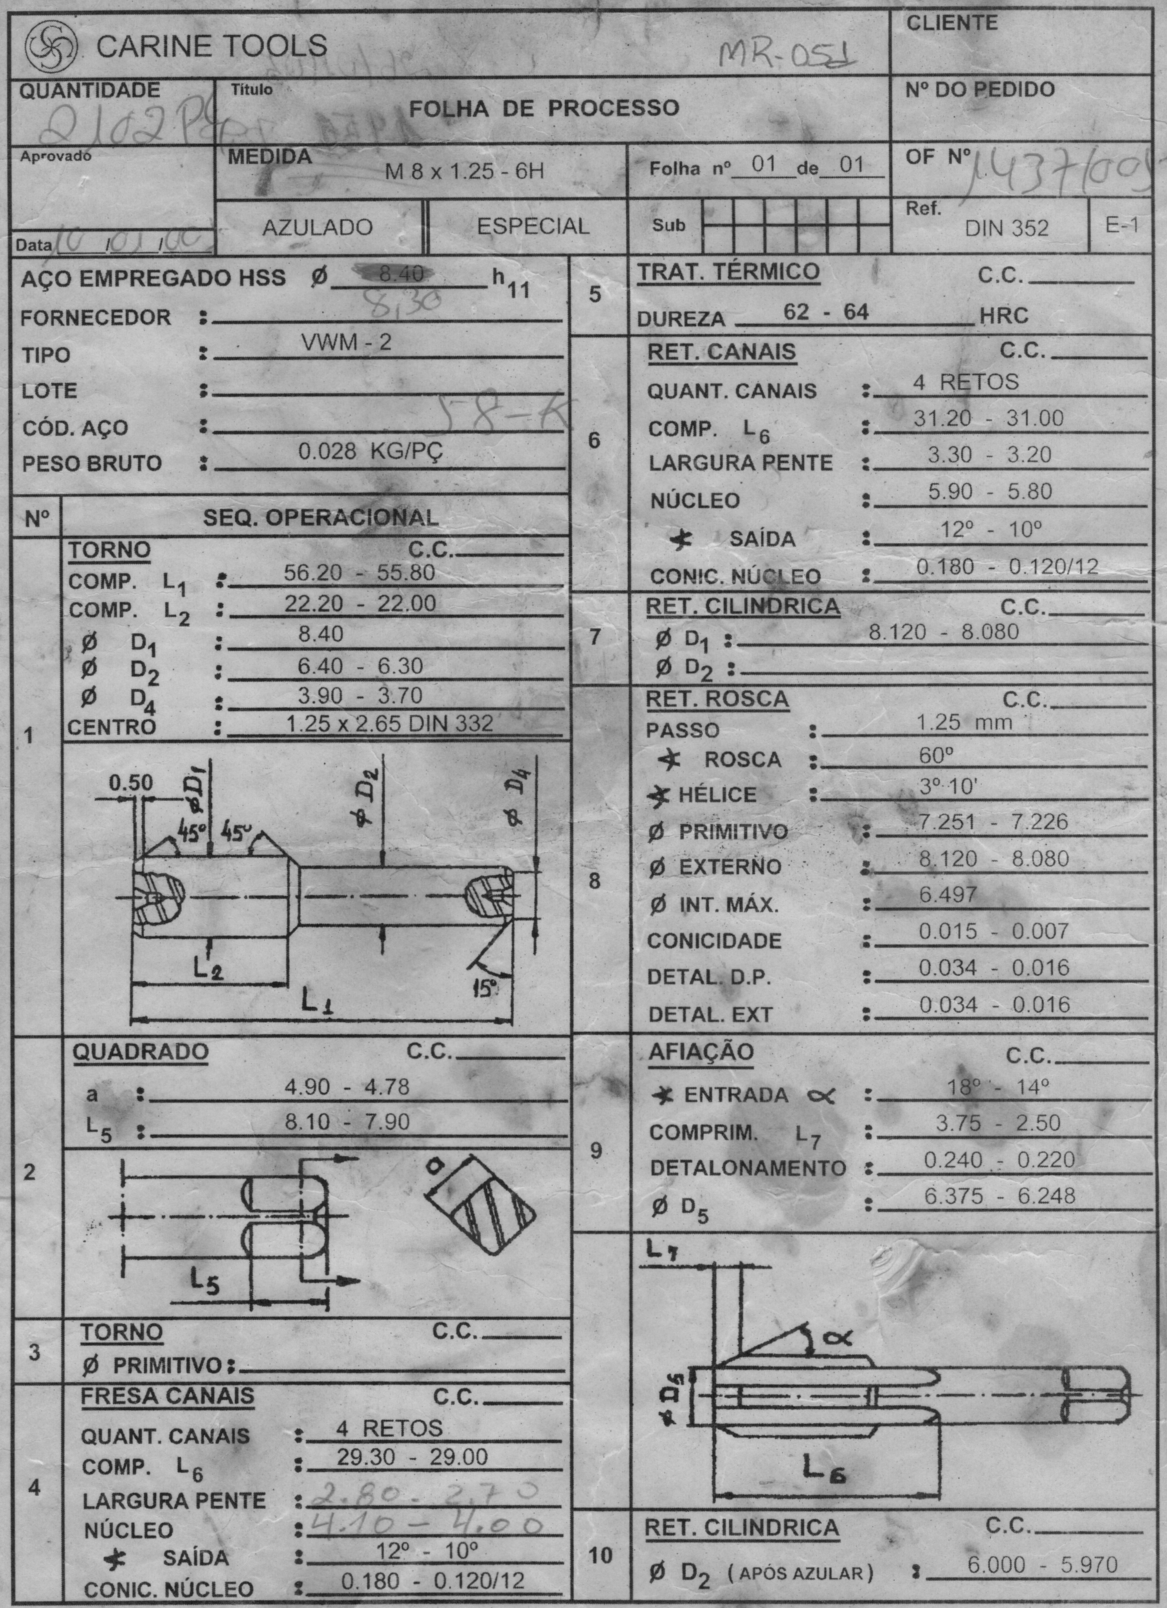 CARINE TOOLS
MR-051
CLIENTE
QUANTIDADE
2102 PÇ
Título
FOLHA DE PROCESSO
Nº DO PEDIDO
Aprovado
MEDIDA
M 8 x 1.25 - 6H
Folha nº 01 de 01
OF Nº 1437/00
Data 10 /01 /00
AZULADO
ESPECIAL
Sub
Ref.
DIN 352
E-1
AÇO EMPREGADO HSS Ø 8.40 h11
8,30
FORNECEDOR :
TIPO : VWM - 2
LOTE :
CÓD. AÇO : 58-K
PESO BRUTO : 0.028 KG/PÇ
Nº
SEQ. OPERACIONAL
1
TORNO C.C.
COMP. L1 : 56.20 - 55.80
COMP. L2 : 22.20 - 22.00
Ø D1 : 8.40
Ø D2 : 6.40 - 6.30
Ø D4 : 3.90 - 3.70
CENTRO : 1.25 x 2.65 DIN 332
0.50
Ø D1
45º
45º
Ø D2
Ø D4
L2
L1
15º
2
QUADRADO C.C.
a : 4.90 - 4.78
L5 : 8.10 - 7.90
a
L5
3
TORNO C.C.
Ø PRIMITIVO :
4
FRESA CANAIS C.C.
QUANT. CANAIS : 4 RETOS
COMP. L6 : 29.30 - 29.00
LARGURA PENTE : 2.80 - 2.70
NÚCLEO : 4.10 - 4.00
SAÍDA : 12º - 10º
CONIC. NÚCLEO : 0.180 - 0.120/12
5
TRAT. TÉRMICO C.C.
DUREZA 62 - 64 HRC
6
RET. CANAIS C.C.
QUANT. CANAIS : 4 RETOS
COMP. L6 : 31.20 - 31.00
LARGURA PENTE : 3.30 - 3.20
NÚCLEO : 5.90 - 5.80
SAÍDA : 12º - 10º
CONIC. NÚCLEO : 0.180 - 0.120/12
7
RET. CILINDRICA C.C.
Ø D1 : 8.120 - 8.080
Ø D2 :
8
RET. ROSCA C.C.
PASSO : 1.25 mm
ROSCA : 60º
HÉLICE : 3º 10'
Ø PRIMITIVO : 7.251 - 7.226
Ø EXTERNO : 8.120 - 8.080
Ø INT. MÁX. : 6.497
CONICIDADE : 0.015 - 0.007
DETAL. D.P. : 0.034 - 0.016
DETAL. EXT : 0.034 - 0.016
9
AFIAÇÃO C.C.
ENTRADA α : 18º - 14º
COMPRIM. L7 : 3.75 - 2.50
DETALONAMENTO : 0.240 - 0.220
Ø D5 : 6.375 - 6.248
L7
α
Ø D5
L6
10
RET. CILINDRICA C.C.
Ø D2 (APÓS AZULAR) : 6.000 - 5.970